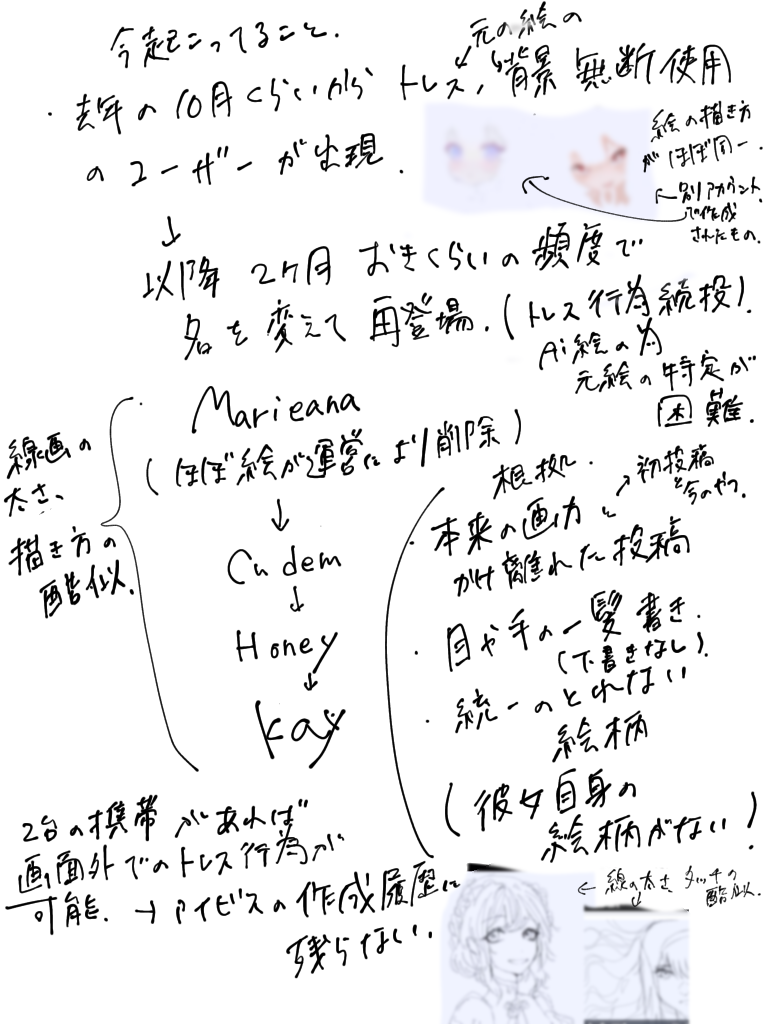 今起こってること.
元の絵の
・去年の10月くらいから トレス,背景 無断使用
のユーザーが出現.
絵の描き方
がほぼ同一.
←別アカウント
で作成
されたもの.
↓
以降 2ヶ月 おきくらいの頻度で
名を変えて 再登場.(トレス行為続投)
Ai絵の為
元絵の特定が
困難.
・Marieana
(ほぼ絵が運営により削除)
↓
Cudem
↓
Honey
↓
kay
線画の
太さ、
描き方の
酷似.
根拠.
・本来の画力と
→初投稿
と今のやつ.
かけ離れた投稿
・目や手の一髪書き.
(下書きなし).
・統一のとれない
絵柄
(彼女自身の
絵柄がない!)
2台の携帯があれば
画面外でのトレス行為が
可能. → アイビスの作成履歴に
残らない.
← 線の太さ タッチの
酷似.
↓